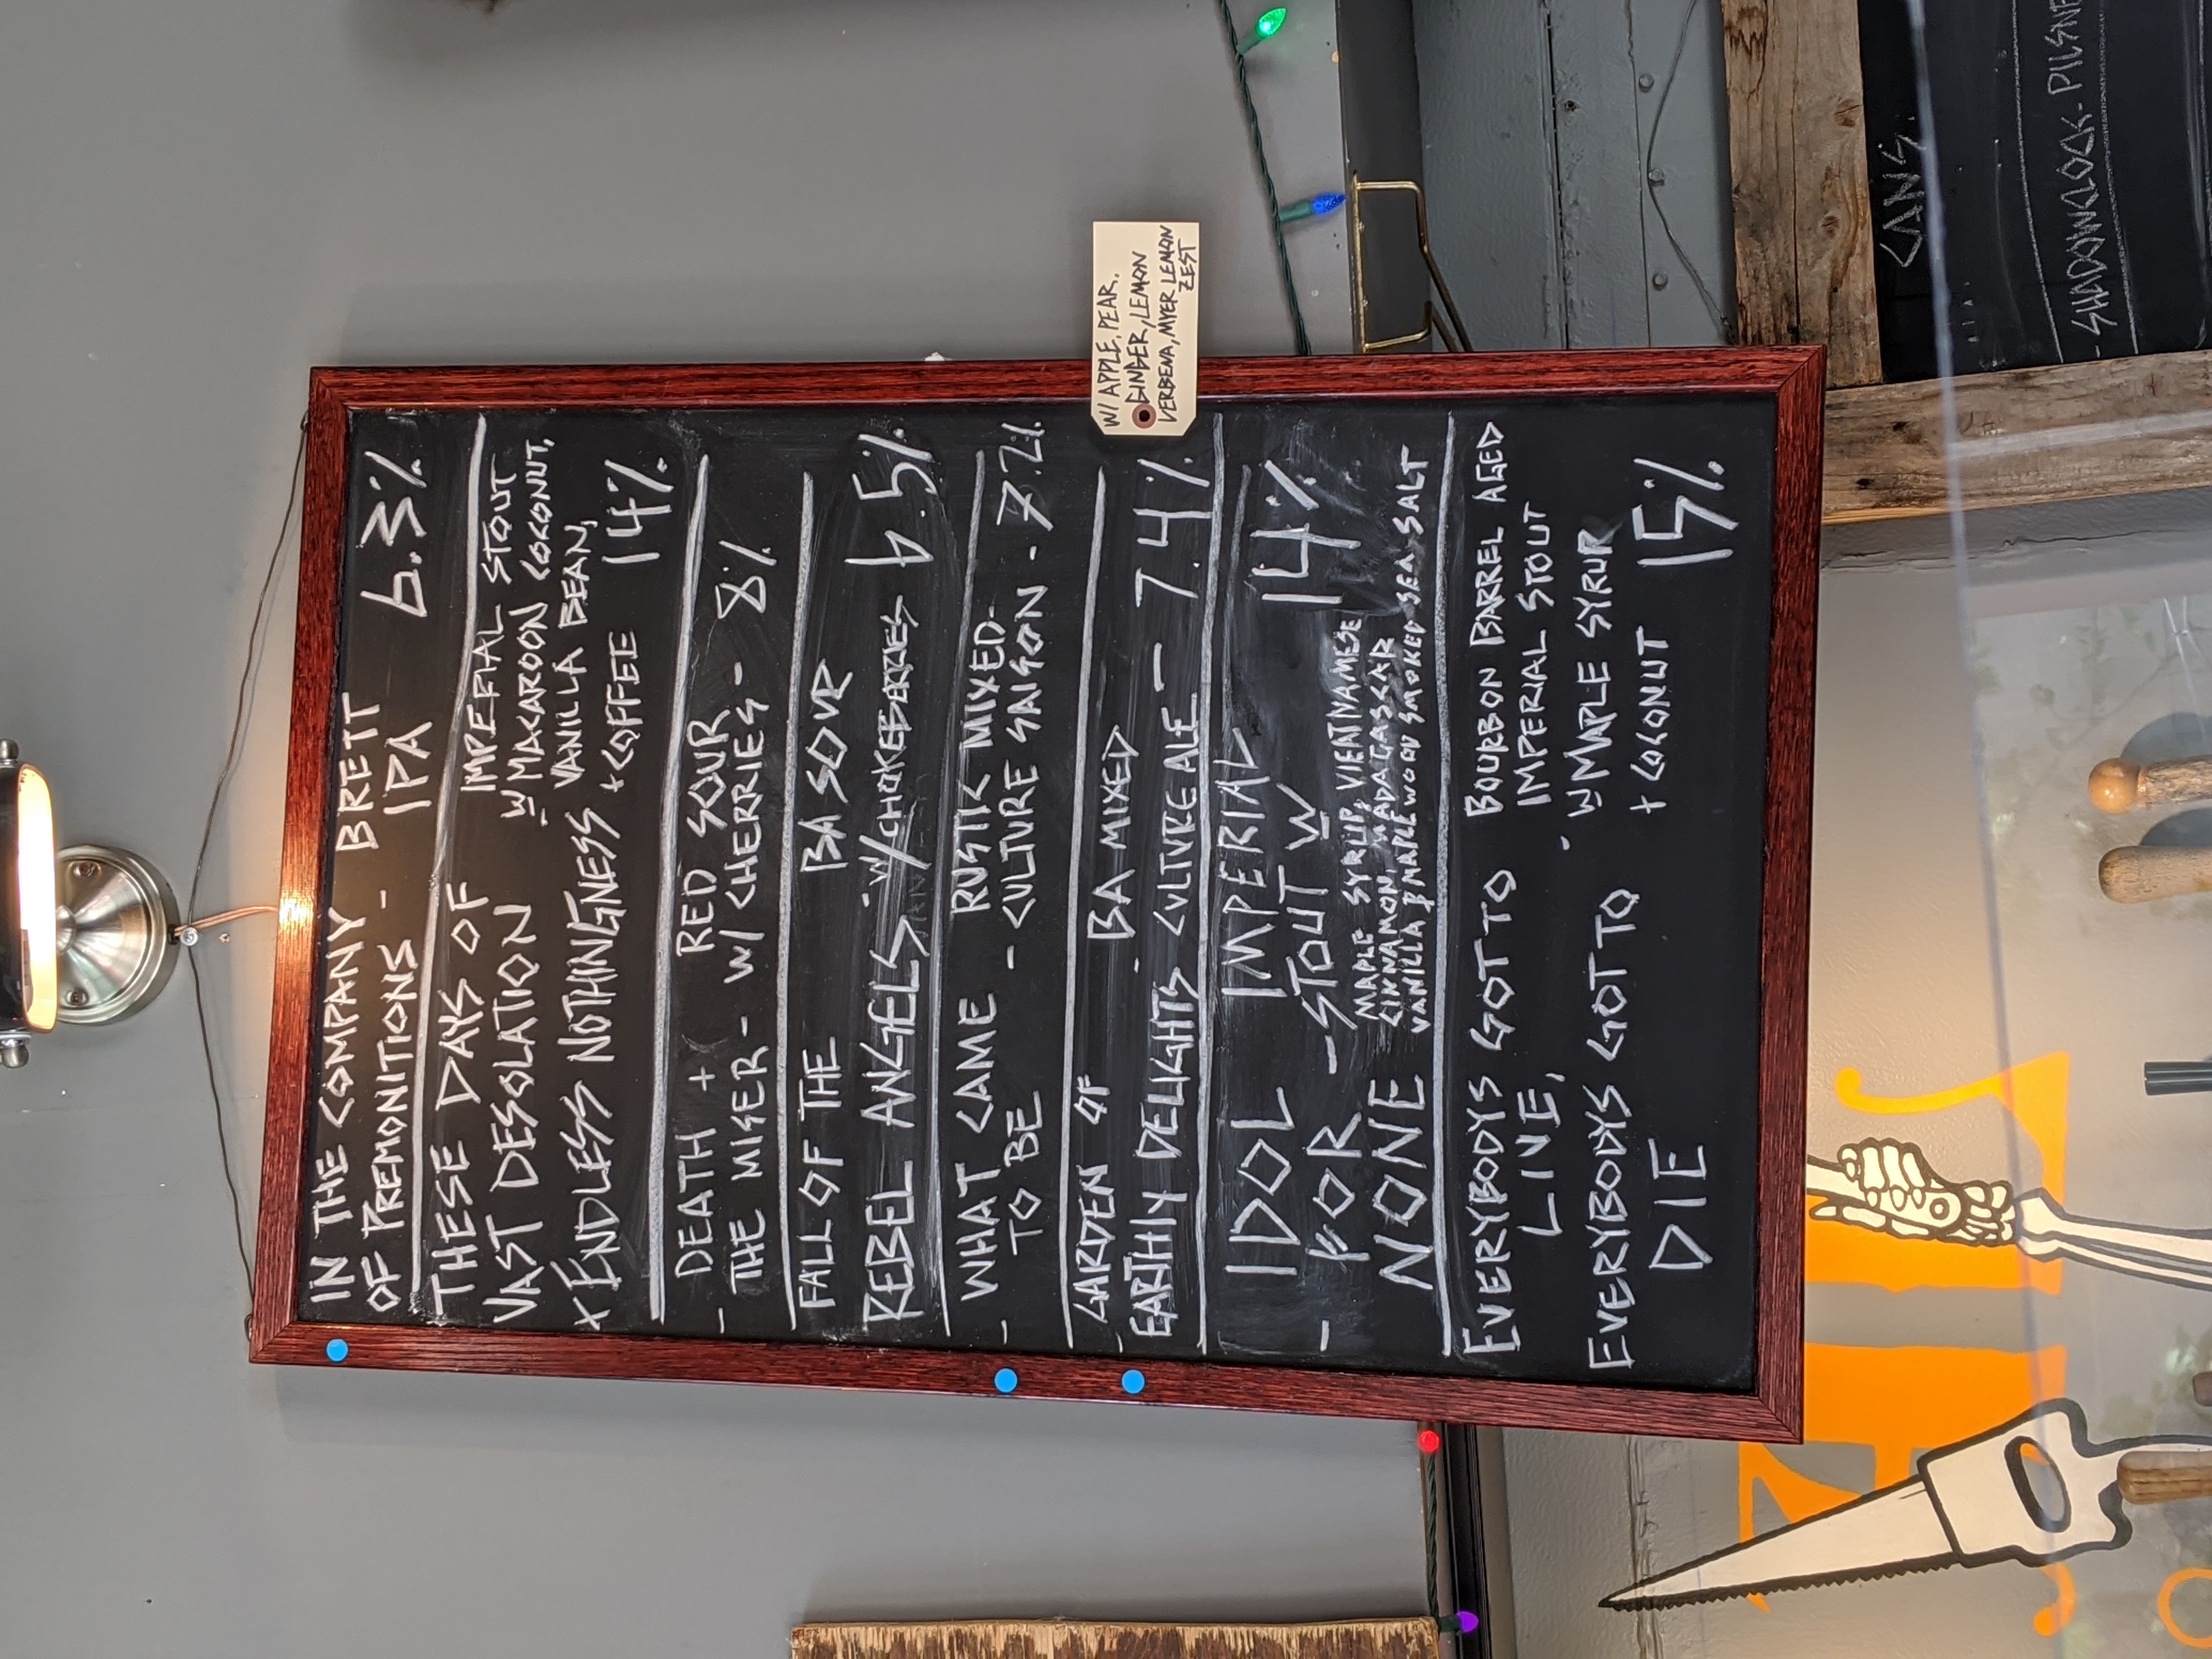 IN THE COMPANY
OF PREMONITIONS -
BRETT
IPA
6.3%
THESE DAYS OF
VAST DESOLATION
+ ENDLESS NOTHINGNESS
IMPERIAL STOUT
W MACAROON COCONUT,
VANILLA BEAN,
+ COFFEE
14%
- DEATH +
THE MISER -
RED SOUR
W/ CHERRIES -
8%
FALL OF THE
REBEL ANGELS -
BA SOUR
W/ CHOKEBERRIES
6.5%
- WHAT CAME
TO BE
RUSTIC MIXED-
- CULTURE SAISON -
7.2%
- GARDEN OF
EARTHLY DELIGHTS -
BA MIXED
CULTURE ALE -
7.4%
W/ APPLE, PEAR,
GINGER, LEMON
VERBENA, MYER LEMON
ZEST
- IDOL
FOR
NONE
IMPERIAL
- STOUT W
MAPLE SYRUP, VIEATNAMESE
CINNAMON, MADAGASCAR
VANILLA & MAPLEWOOD SMOKED SEA SALT
14%
EVERYBODYS GOT TO
LIVE,
EVERYBODYS GOT TO
DIE
-
BOURBON BARREL AGED
IMPERIAL STOUT
W MAPLE SYRUP
+ COCONUT
15%
CANS.
- SHADOWCLOCK - PILSNE